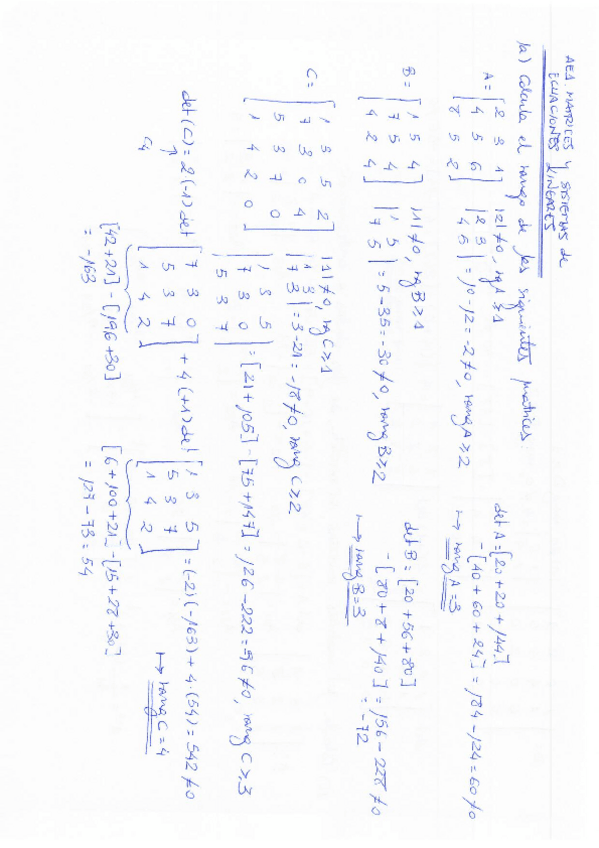 AE1. MATRICES Y SISTEMAS DE
ECUACIONES LINEARES
1a) Calcula el rango de las siguientes matrices:
A = [2 3 1
4 5 6
8 5 2] |2|≠0, rg A ≥ 1
|2 3
4 5| = 10-12 = -2 ≠ 0, rang A ≥ 2
det A = [20 + 20 + 144]
- [40 + 60 + 24] = 184 - 124 = 60 ≠ 0
↦ rang A = 3
B = [1 5 4
7 5 4
4 2 4] |1|≠0, rg B ≥ 1
|1 5
7 5| = 5 - 35 = -30 ≠ 0, rang B ≥ 2
det B = [20 + 56 + 80]
- [80 + 8 + 140] = 156 - 228 ≠ 0
= -72
↦ rang B = 3
C = [1 3 5 2
7 3 0 4
5 3 7 0
1 4 2 0] |1|≠0, rg C ≥ 1
|1 3
7 3| = 3 - 21 = -18 ≠ 0, rang C ≥ 2
|1 3 5
7 3 0
5 3 7| = [21 + 105] - [75 + 147] = 126 - 222 = 96 ≠ 0, rang C ≥ 3
det (C) = 2 (-1) det [7 3 0
5 3 7
1 4 2] + 4 (+1) det [1 3 5
5 3 7
1 4 2] = (-2)(-163) + 4·(54) = 542 ≠ 0
C4
[42 + 21] - [196 + 30]
= -163
[6 + 100 + 21] - [15 + 28 + 30]
= 127 - 73 = 54
↦ rang C = 4